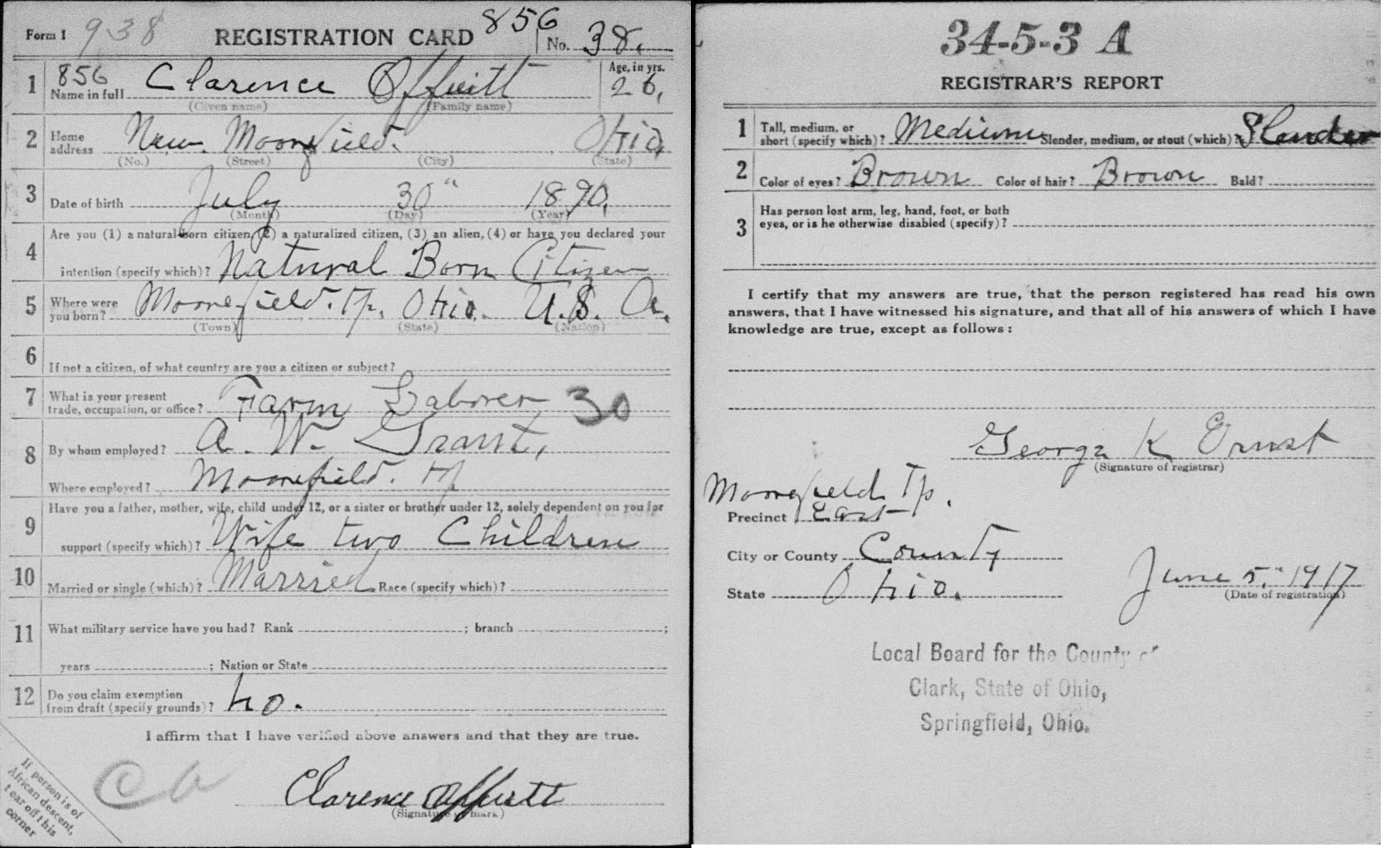 Form 1 938 REGISTRATION CARD 856 No. 38.
1 856 Name in full Clarence Offutt Age, in yrs. 26,
(Given name) (Family name)
2 Home address New Moorefield. Ohio,
(No.) (Street) (City) (State)
3 Date of birth July 30" 1890,
(Month) (Day) (Year)
4 Are you (1) a natural-born citizen, (2) a naturalized citizen, (3) an alien, (4) or have you declared your
intention (specify which)? Natural Born Citizen
5 Where were you born? Moorefield. Tp. Ohio. U.S. A.
(Town) (State) (Nation)
6 If not a citizen, of what country are you a citizen or subject?
7 What is your present trade, occupation, or office? Farm Laborer 30
8 By whom employed? A. W. Grant,
Where employed? Moorefield. Tp
9 Have you a father, mother, wife, child under 12, or a sister or brother under 12, solely dependent on you for
support (specify which)? Wife two Children
10 Married or single (which)? Married Race (specify which)?
11 What military service have you had? Rank ; branch ;
years ; Nation or State
12 Do you claim exemption from draft (specify grounds)? No.
I affirm that I have verified above answers and that they are true.
Clarence Offutt
(Signature or mark)
If person is of
African descent,
tear off this
corner
34-5-3 A
REGISTRAR'S REPORT
1 Tall, medium, or short (specify which)? Medium Slender, medium, or stout (which)? Slender
2 Color of eyes? Brown Color of hair? Brown Bald?
3 Has person lost arm, leg, hand, foot, or both
eyes, or is he otherwise disabled (specify)?
I certify that my answers are true, that the person registered has read his own
answers, that I have witnessed his signature, and that all of his answers of which I have
knowledge are true, except as follows:
George K Ernst
(Signature of registrar)
Moorefield Tp.
Precinct East
City or County County
State Ohio. June 5," 1917
(Date of registration)
Local Board for the County of
Clark, State of Ohio,
Springfield, Ohio.